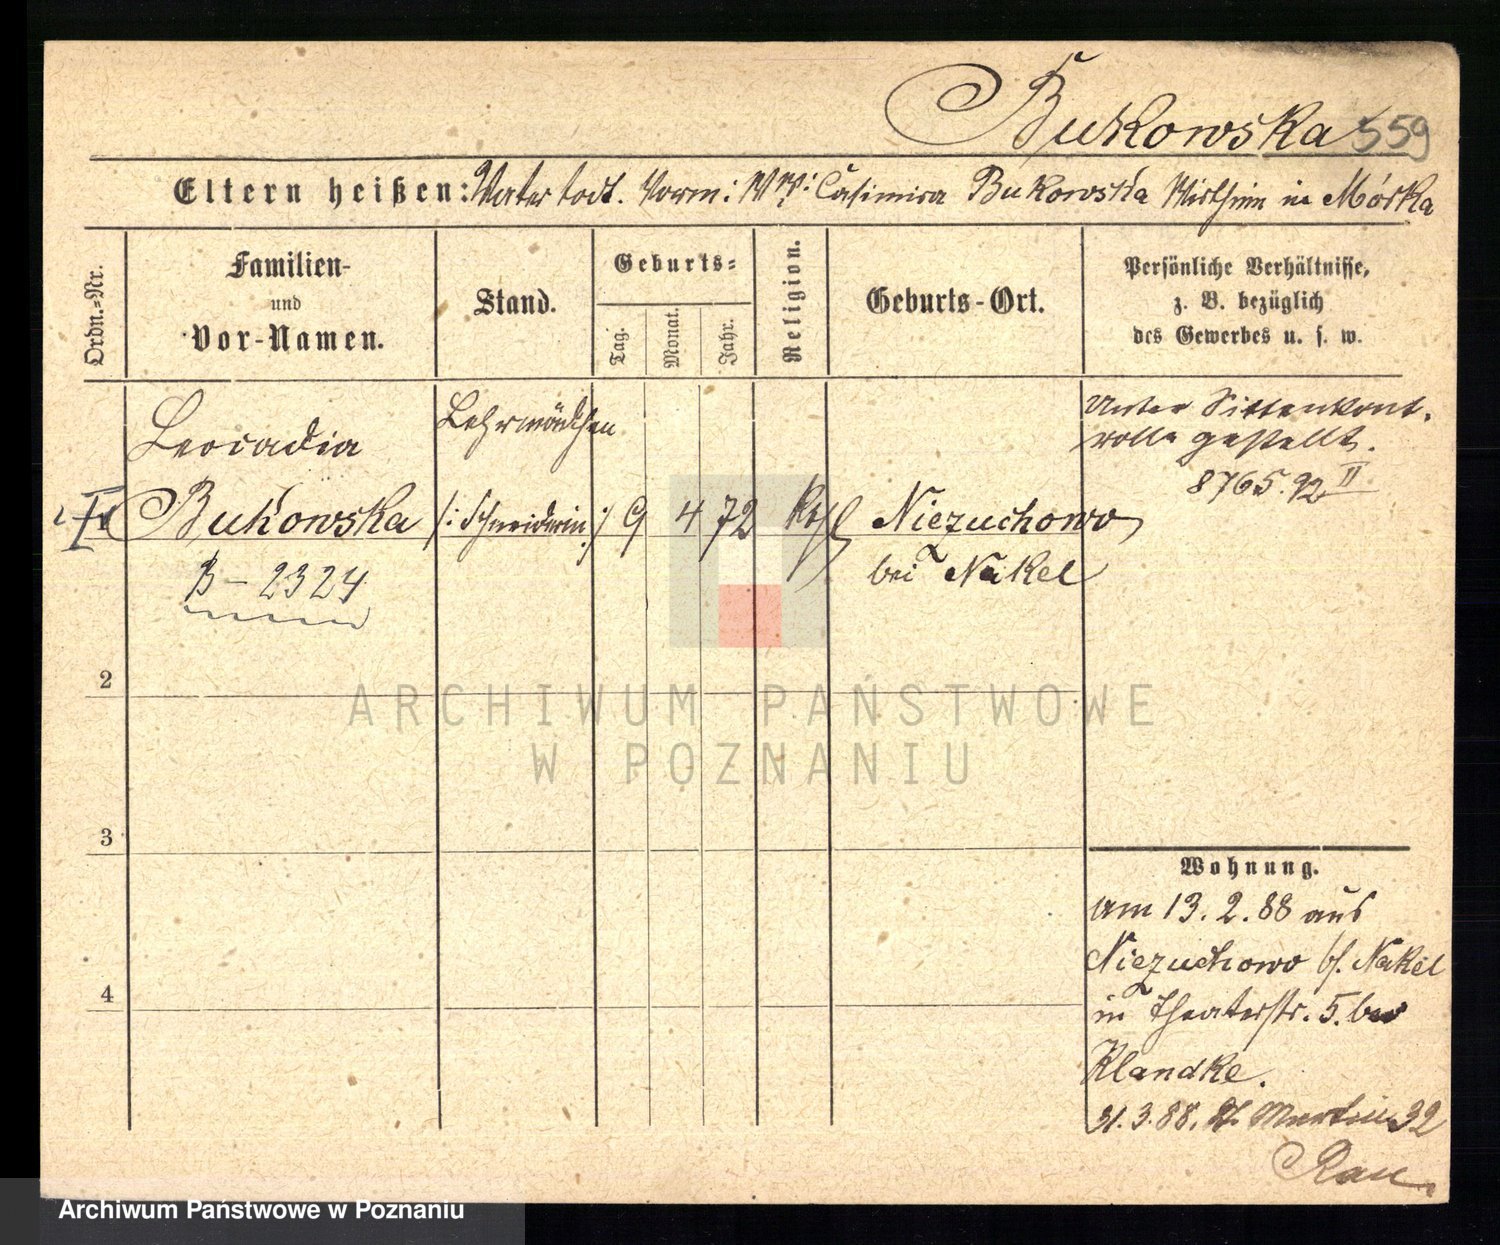 Bukowska 559
Eltern heißen: Vater todt. Vorm: Ww: Casimira Bukowska Wirthin in Mórka
Ordn.-Nr.
Familien-
und
Vor-Namen.
Stand.
Geburts-
Tag.
Monat.
Jahr.
Religion.
Geburts-Ort.
Persönliche Verhältnisse,
z. B. bezüglich
des Gewerbes u. s. w.
Leocadia
Bukowska
B - 2324
Lehrmädchen
/: Schneiderin :/
9 4 72
Niezuchowo
bei Nakel
Unter Sittenkont-
rolle gestellt.
8765.92 II
2
3
4
Wohnung.
am 13. 2. 88 aus
Niezuchowo b/. Nakel
in Theaterstr. 5. bei
Klandke.
31. 3. 88. St. Martin 32
Rau.
ARCHIWUM PAŃSTWOWE
W POZNANIU
Archiwum Państwowe w Poznaniu